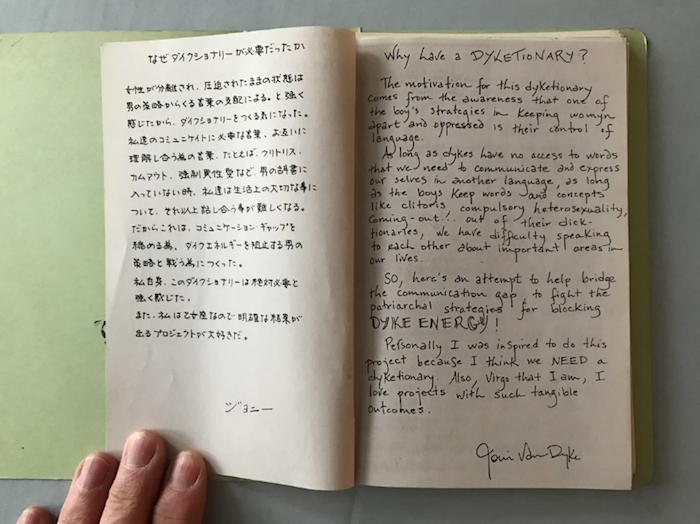 なぜダイクショナリーが必要だったか
女性が分離され、圧迫されたままの状態は
男の策略からくる言葉の支配による。と強く
感じたから、ダイクショナリーをつくる気になった。
私達のコミュニケイトに必要な言葉、お互いに
理解し合う為の言葉、たとえば、クリトリス、
カムアウト、強制異性愛など、男の辞書に
入っていない時、私達は生活上の大切な事に
ついて、それ以上話し合う事が難しくなる。
だからこれは、コミュニケーション・ギャップを
縮める為、ダイクエネルギーを阻止する男の
策略と戦う為につくった。
私自身、このダイクショナリーは絶対必要と
強く感じた。
また、私は乙女座なので明確な結果が
出るプロジェクトが大好きだ。
ジョニー
Why have a DYKETIONARY?
The motivation for this dyketionary
comes from the awareness that one of
the boy's strategies in keeping womyn
apart and oppressed is their control of
language.
As long as dykes have no access to words
that we need to communicate and express
our selves in another language, as long
as the boys keep words and concepts
like clitoris compulsory heterosexuality,
coming-out!.. out of their dick-
tionaries, we have difficulty speaking
to each other about important areas in
our lives.
SO, here's an attempt to help bridge
the communication gap, to fight the
patriarchal strategies for blocking
DYKE ENERGY!
Personally I was inspired to do this
project because I think we NEED a
dyketionary. Also, Virgo that I am, I
love projects with such tangible
outcomes.
Joni Van Dyke